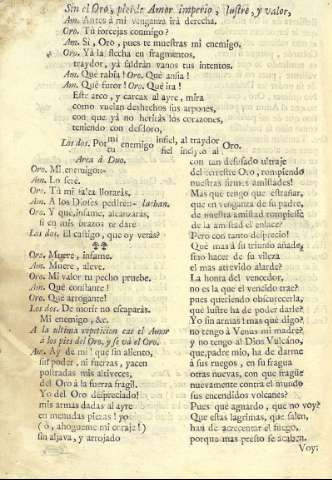 Sin el Oro, pierde Amor imperio, lustre, y valor,
Am. Antes à mi venganza irá derecha.
Oro. Tú forcejas conmigo?
Am. Si, Oro, pues te muestras mi enemigo,
Oro. Yá la flecha en fragmentos,
traydor, yá saldrán vanos tus intentos.
Am. Què rabia! Oro. Què ansia!
Am. Què furor! Oro. Què ira!
Este arco, y carcax al ayre, mira
como vuelan deshechos sus arpones,
con que yá no herirás los corazones,
teniendo con desdoro,
Los dos. Por mi enemigo infiel, al traydor Oro.
tu fiel indigno al
Area à Duo.
Oro. Mi enemigo:-
Am. Lo seré.
Oro. Tú mi saña llorarás.
Am. A los Dioses pediré:- luchan.
Oro. Y que, infame, alcanzarás,
si en mis brazos te daré
Los dos. El castigo, que oy verás?
Oro. Muere, infame.
Am. Muere, aleve.
Oro. Mi valor tu pecho pruebe.
Am. Què constante!
Oro. Què arrogante!
Los dos. De morir no escaparás.
Mi enemigo, &c.
A la ultima repeticion cae el Amor
à los pies del Oro, y se vá el Oro.
Am. Ay de mi! que sin aliento,
sin poder, ni fuerzas, yacen
postradas mis altiveces,
del Oro á la fuerza fragil.
Yo del Oro despreciado!
mis armas dadas al ayre
en menudas piezas! yo
(ò, ahogueme mi coraje!)
sin aljava, y arrojado
con tan desusado ultraje
del terrestre Oro, rompiendo
nuestras firmes amistades!
Mas què tengo que estrañar,
que en venganza de su padre,
de nuestra amistad rompiesse
de la amistad el enlace?
Pero con tanto desprecio!
Què mas à su triunfo añade,
sino hacer de su vileza
el mas atrevido alarde?
La honra del vencedor,
no es la que el vencido trae?
pues queriendo obscurecerla,
què lustre ha de poder darle?
Yo sin armas! mas què digo?
no tengo à Venus mi madre?
y no tengo al Dios Vulcano,
que, padre mio, ha de darme
à sus ruegos, en su fragua
otras nuevas, con que fragüe
nuevamente contra el mundo
sus encendidos volcanes?
Pues què aguardo, que no voy?
Que estas lagrimas, que salen,
han de acrecentar el fuego,
porque mas presto se acaben.
Voy: